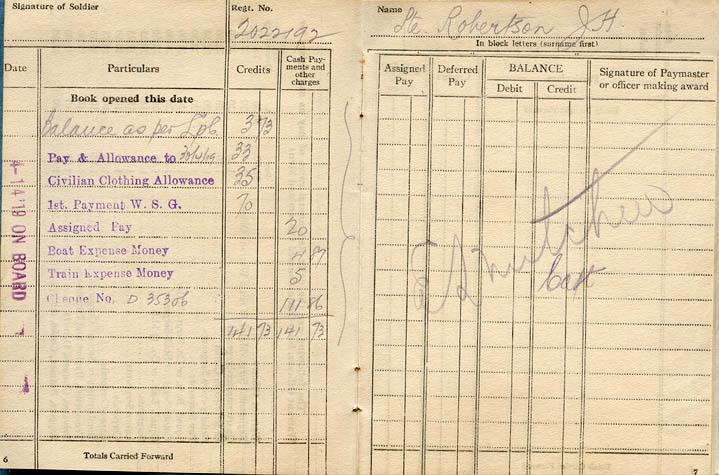 Signature of Soldier
Regt. No.
2022192
Date
Particulars
Credits
Cash Pay-
ments and
other
charges
Book opened this date
Balance as per Lpb 3 73
Pay & Allowance to 33
Civilian Clothing Allowance 35
1st. Payment W. S. G. 70
Assigned Pay 20
Boat Expense Money 4 87
Train Expense Money 5
Cheque No. D 35306 111 86
141 73 141 73
ON BOARD
6
Totals Carried Forward
Name
Pte. Robertson J.H.
In block letters (surname first)
Assigned
Pay
Deferred
Pay
BALANCE
Debit
Credit
Signature of Paymaster
or officer making award
Capt
7